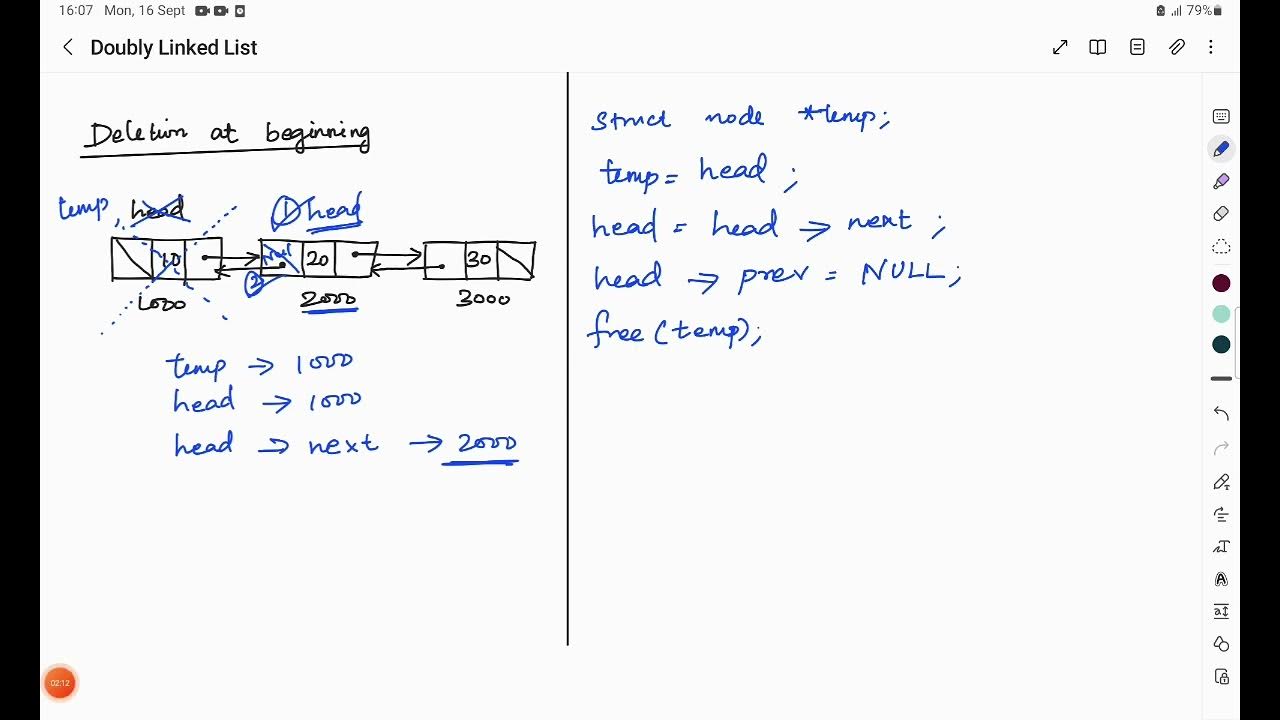 16:07 Mon, 16 Sept 79%
Doubly Linked List
Deletion at beginning
temp, head ① head
10 Null 20 30
②
1000 2000 3000
temp → 1000
head → 1000
head → next → 2000
struct node *temp;
temp = head ;
head = head → next ;
head → prev = NULL;
free (temp);
02:12